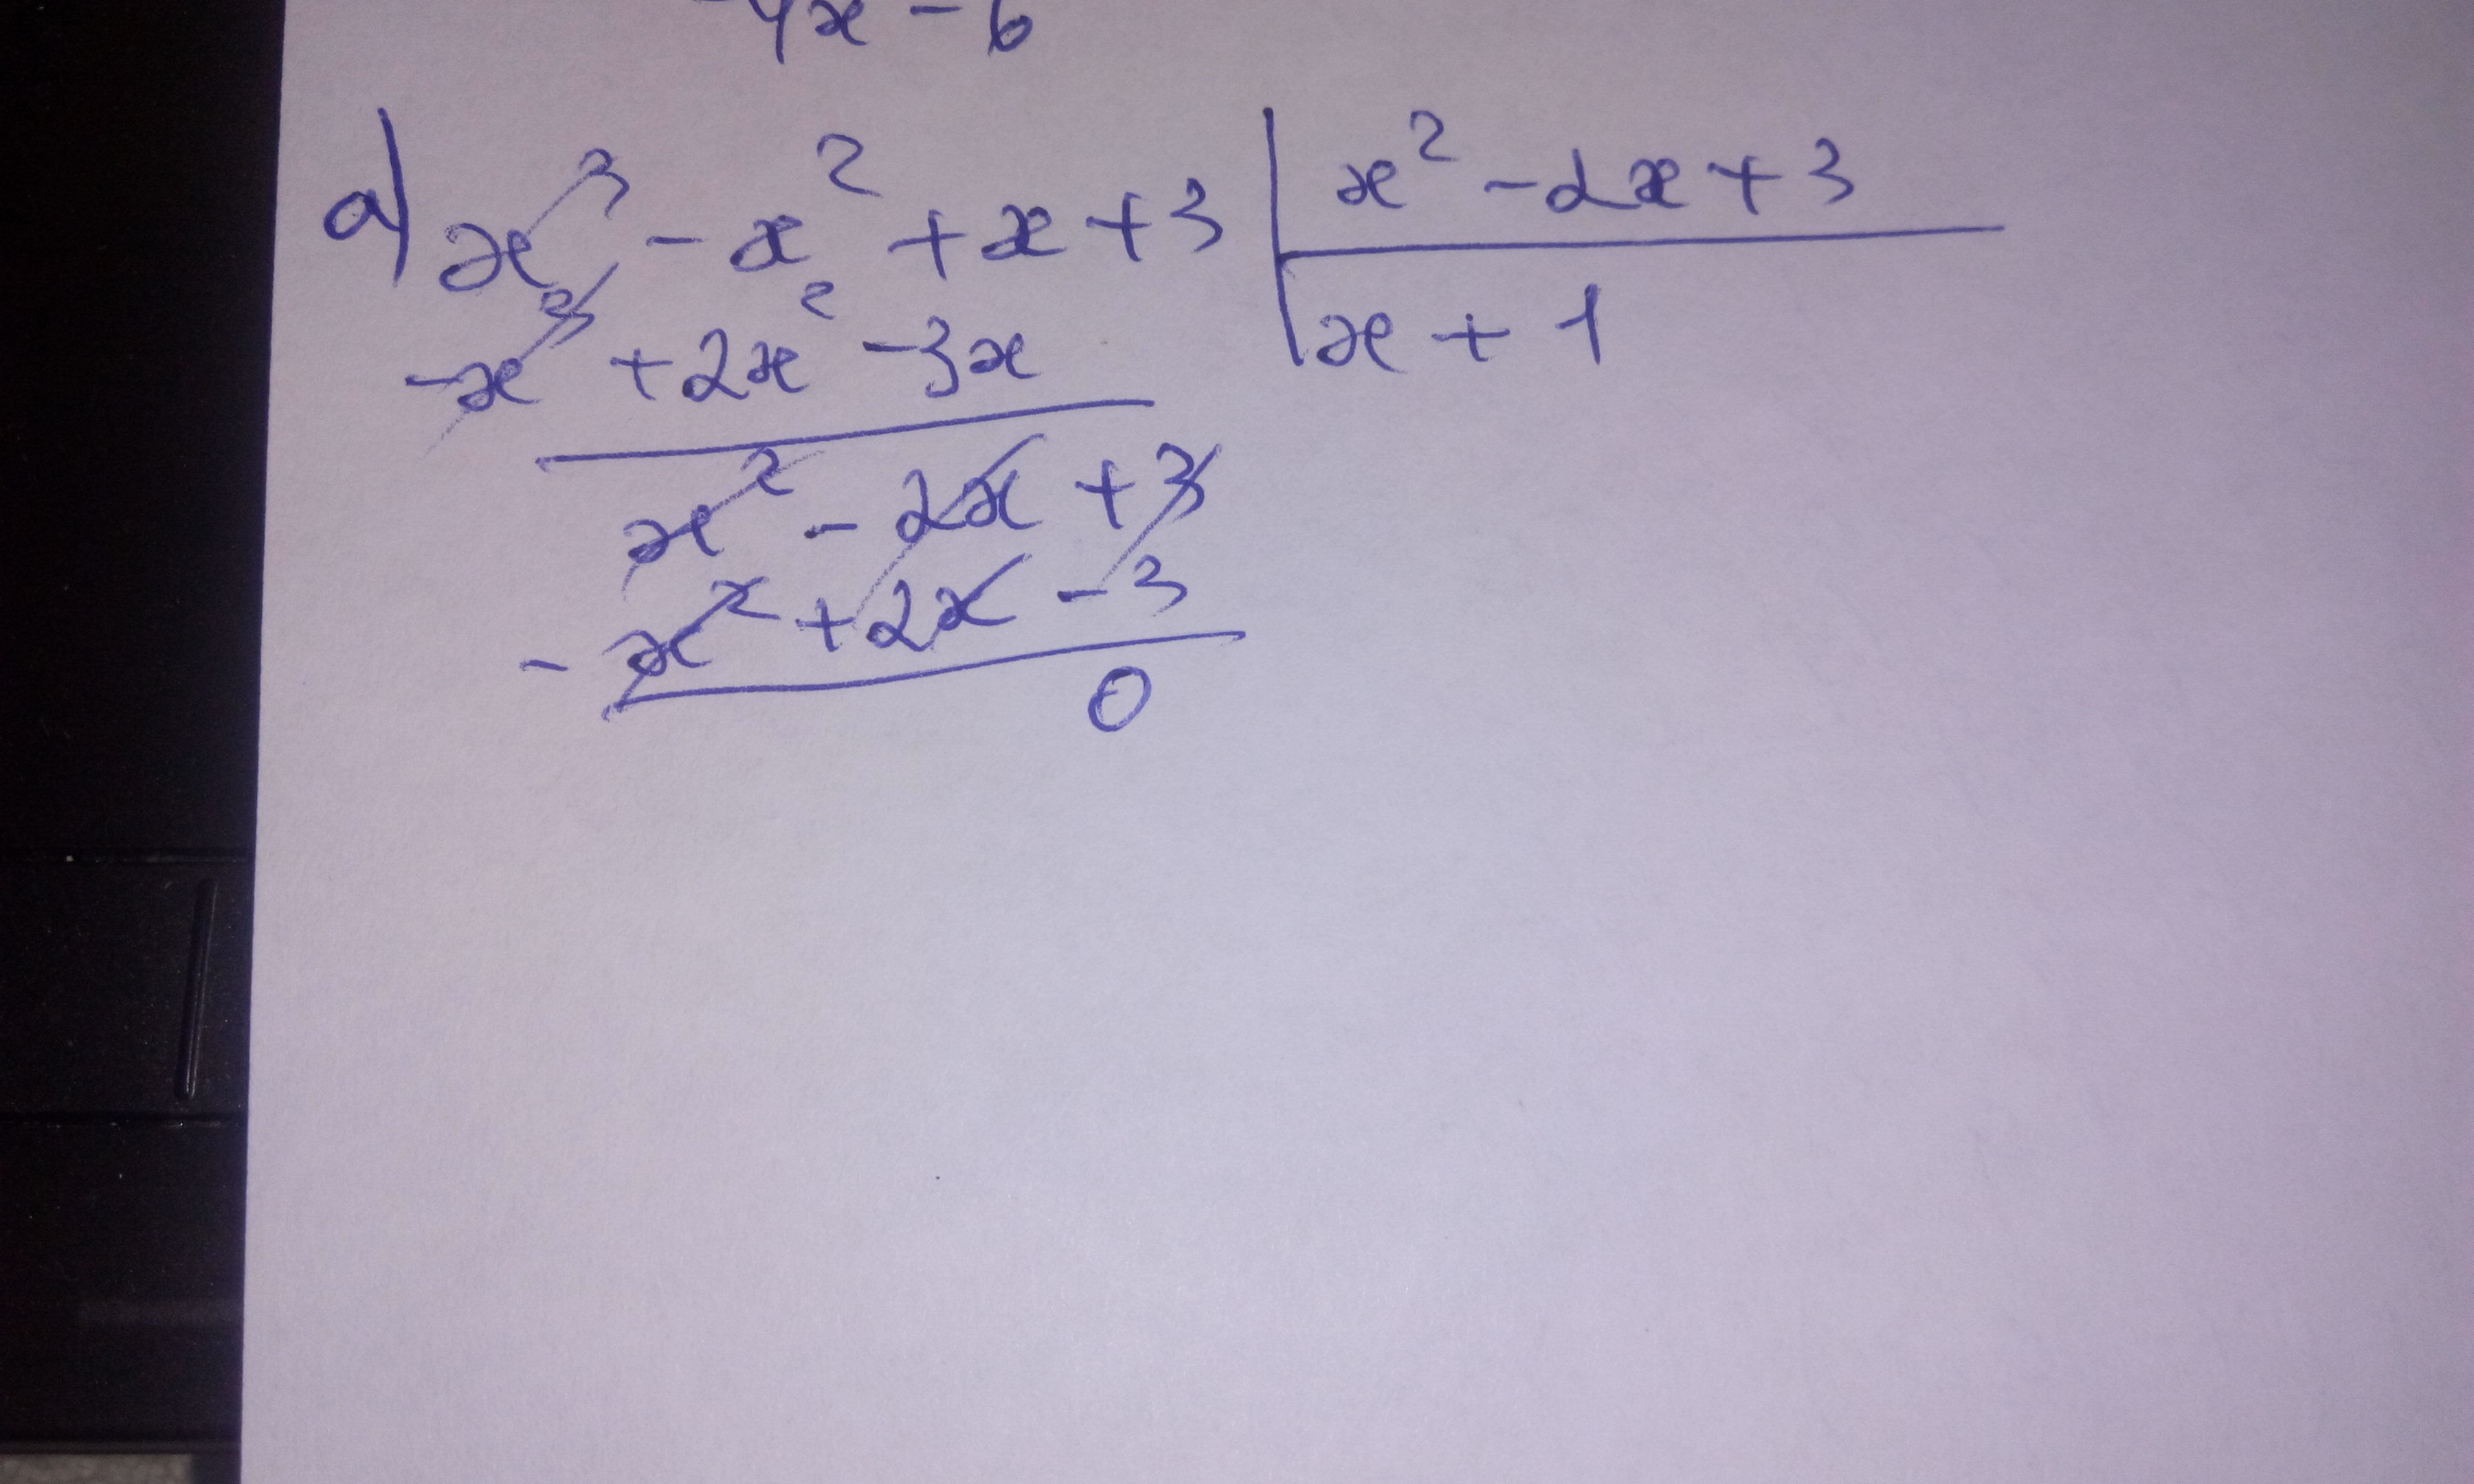 -4x - 6
a) x³ - x² + x + 3 | x² - 2x + 3
-x³ + 2x² - 3x | x + 1
x² - 2x + 3
- x² + 2x - 3
0